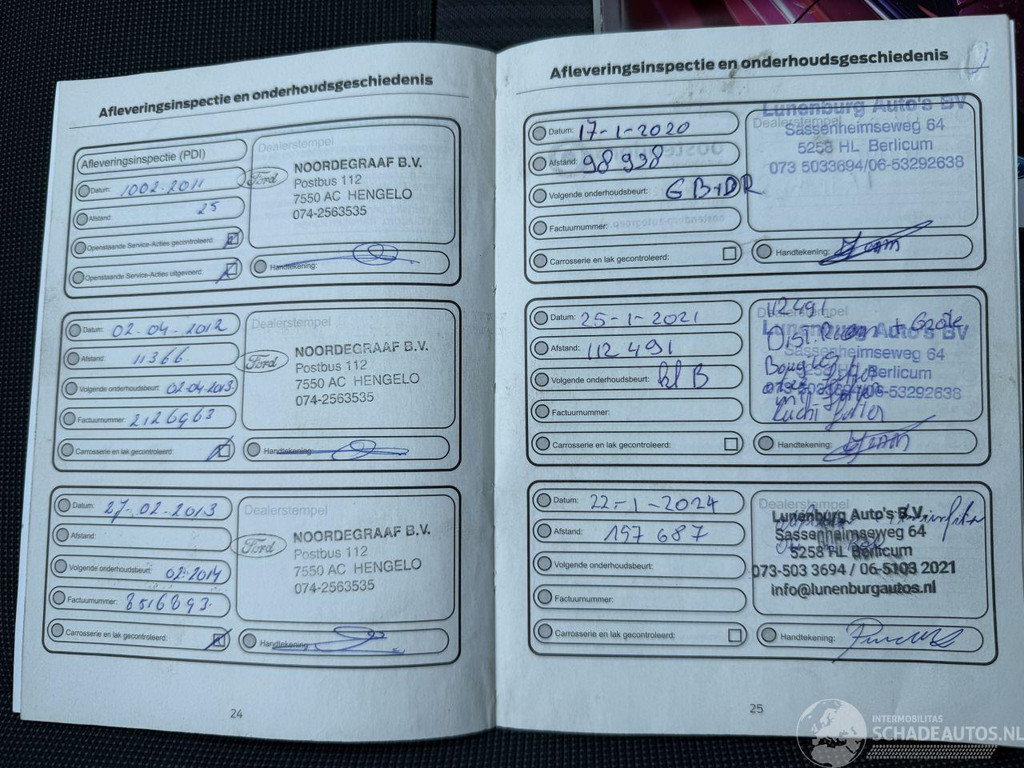 Afleveringsinspectie en onderhoudsgeschiedenis
Afleveringsinspectie (PDI)
Datum: 1002-2011
Afstand: 25
Openstaande Service-Acties gecontroleerd:
Openstaande Service-Acties uitgevoerd:
Dealerstempel
Ford
NOORDEGRAAF B.V.
Postbus 112
7550 AC HENGELO
074-2563535
Handtekening:
Datum: 02-04-2012
Afstand: 11366
Volgende onderhoudsbeurt: 02-04-2013
Factuurnummer: 2126963
Carrosserie en lak gecontroleerd:
Dealerstempel
Ford
NOORDEGRAAF B.V.
Postbus 112
7550 AC HENGELO
074-2563535
Handtekening:
Datum: 27-02-2013
Afstand:
Volgende onderhoudsbeurt: 02-2014
Factuurnummer: 8516893
Carrosserie en lak gecontroleerd:
Dealerstempel
Ford
NOORDEGRAAF B.V.
Postbus 112
7550 AC HENGELO
074-2563535
Handtekening:
24
Afleveringsinspectie en onderhoudsgeschiedenis
Datum: 17-1-2020
Afstand: 98938
Volgende onderhoudsbeurt: GB+DR
Factuurnummer:
Carrosserie en lak gecontroleerd:
Dealerstempel
Lunenburg Auto's BV
Sassenheimseweg 64
5258 HL Berlicum
073 5033694/06-53292638
Handtekening:
Datum: 25-1-2021
Afstand: 112491
Volgende onderhoudsbeurt: kl B
Factuurnummer:
Carrosserie en lak gecontroleerd:
Dealerstempel
112491
Lunenburg Auto's BV
Sassenheimseweg 64
Berlicum
06-53292638
Handtekening:
Datum: 22-1-2024
Afstand: 197687
Volgende onderhoudsbeurt:
Factuurnummer:
Carrosserie en lak gecontroleerd:
Dealerstempel
Lunenburg Auto's B.V.
Sassenheimseweg 64
5258 HL Berlicum
073-503 3694 / 06-5103 2021
info@lunenburgautos.nl
Handtekening:
25
INTERMOBILITAS
SCHADEAUTOS.NL